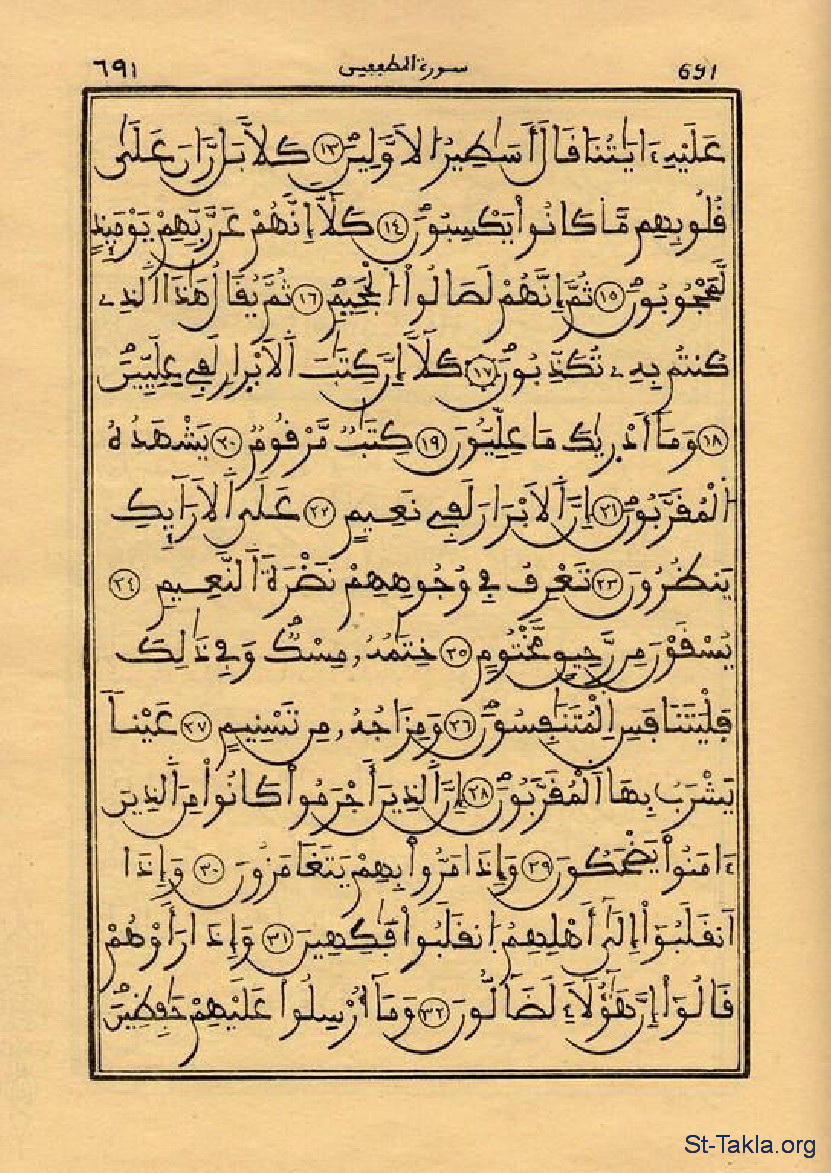 ٦٩١ سورة المطففين 691
عَلَيْهِ ءَايَٰتُنَا قَالَ أَسَٰطِيرُ الَاوَّلِينَ ١٣ كَلَّا بَل رَّانَ عَلَىٰ
قُلُوبِهِم مَّا كَانُوا يَكْسِبُونَ ١٤ كَلَّا إِنَّهُمْ عَن رَّبِّهِمْ يَوْمَئِذٍ
لَّمَحْجُوبُونَ ١٥ ثُمَّ إِنَّهُمْ لَصَالُوا الْجَحِيمِ ١٦ ثُمَّ يُقَالُ هَٰذَا الذِے
كُنتُم بِهِ تُكَذِّبُونَ ١٧ كَلَّا إِنَّ كِتَٰبَ الَابْرَارِ لَفِے عِلِّيِّينَ
١٨ وَمَا أَدْرَيٰكَ مَا عِلِّيُّونَ ١٩ كِتَٰبٌ مَّرْقُومٌ ٢٠ يَشْهَدُهُ
الْمُقَرَّبُونَ ٢١ إِنَّ الَابْرَارَ لَفِے نَعِيمٍ ٢٢ عَلَى الَارَآئِكِ
يَنظُرُونَ ٢٣ تَعْرِفُ فِے وُجُوهِهِمْ نَضْرَةَ النَّعِيمِ ٢٤
يُسْقَوْنَ مِن رَّحِيقٍ مَّخْتُومٍ ٢٥ خِتَٰمُهُ مِسْكٌ وَفِے ذَٰلِكَ
فَلْيَتَنَافَسِ الْمُتَنَٰفِسُونَ ٢٦ وَمِزَاجُهُ مِن تَسْنِيمٍ ٢٧ عَيْناً
يَشْرَبُ بِهَا الْمُقَرَّبُونَ ٢٨ إِنَّ الذِينَ أَجْرَمُوا كَانُوا مِنَ الذِينَ
ءَامَنُوا يَضْحَكُونَ ٢٩ وَإِذَا مَرُّوا بِهِمْ يَتَغَامَزُونَ ٣٠ وَإِذَا
اَنقَلَبُوا إِلَىٰ أَهْلِهِمُ انقَلَبُوا فَٰكِهِينَ ٣١ وَإِذَا رَأَوْهُمْ
قَالُوا إِنَّ هَٰؤُلَاءِ لَضَالُّونَ ٣٢ وَمَا أُرْسِلُوا عَلَيْهِمْ حَٰفِظِينَ
St-Takla.org